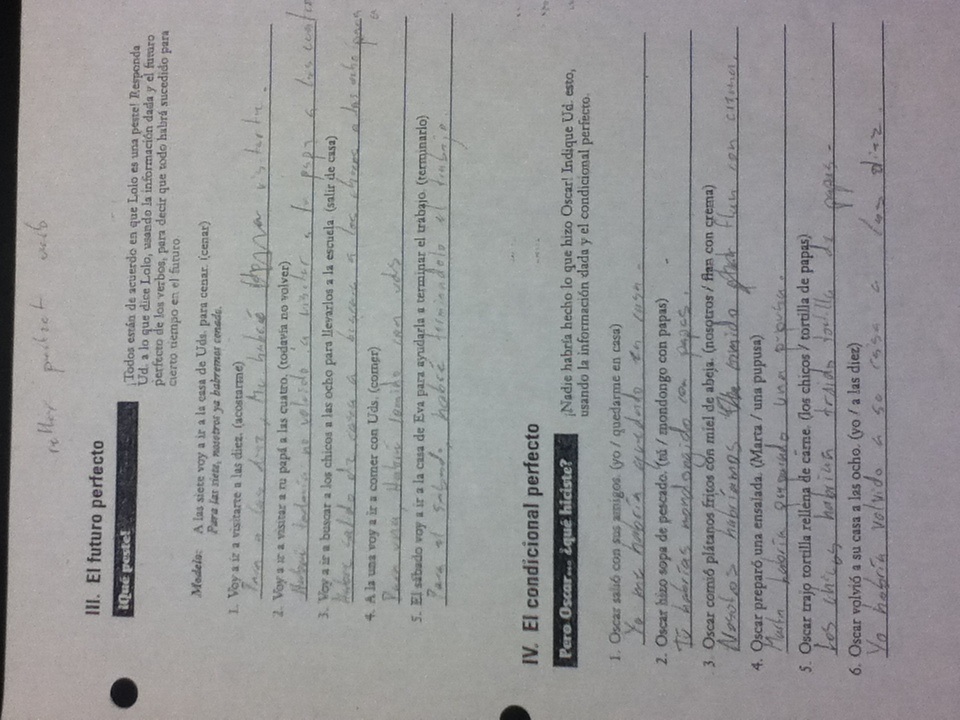 verb
III. El futuro perfecto
¡Qué peste!
¡Todos están de acuerdo en que Lolo es una peste! Responda
Ud. a lo que dice Lolo, usando la información dada y el futuro
perfecto de los verbos, para decir que todo habrá sucedido para
cierto tiempo en el futuro.
Modelo: A las siete voy a ir a la casa de Uds. para cenar. (cenar)
Para las siete, nosotros ya habremos cenado.
1. Voy a ir a visitarte a las diez. (acostarme)
Para a las diez, Me habré visitarte.
2. Voy a ir a visitar a tu papá a las cuatro. (todavía no volver)
Habré todavía no volvido a visitar a tu papa a las cuatro
3. Voy a ir a buscar a los chicos a las ocho para llevarlos a la escuela. (salir de casa)
Habré salido de casa a a los chicos a las ocho para
a
4. A la una voy a ir a comer con Uds. (comer)
Para una, Habré comido con uds
5. El sábado voy a ir a la casa de Eva para ayudarla a terminar el trabajo. (terminarlo)
Para el sabado, habré el trabajo.
IV. El condicional perfecto
Pero Oscar... ¿qué hiciste?
¡Nadie habría hecho lo que hizo Oscar! Indique Ud. esto,
usando la información dada y el condicional perfecto.
1. Oscar salió con sus amigos. (yo / quedarme en casa)
Yo me habría quedado en casa.
2. Oscar hizo sopa de pescado. (tú / mondongo con papas)
Tú habrías mondongido con papas.
3. Oscar comió plátanos fritos con miel de abeja. (nosotros / flan con crema)
Nosotros habríamos comido flan con crema.
4. Oscar preparó una ensalada. (Marta / una pupusa)
Marta habría preparado una pupusa.
5. Oscar trajo tortilla rellena de carne. (los chicos / tortilla de papas)
Los chicos habrían traido tortilla de papas.
6. Oscar volvió a su casa a las ocho. (yo / a las diez)
Yo habría volvido a su casa a las diez.